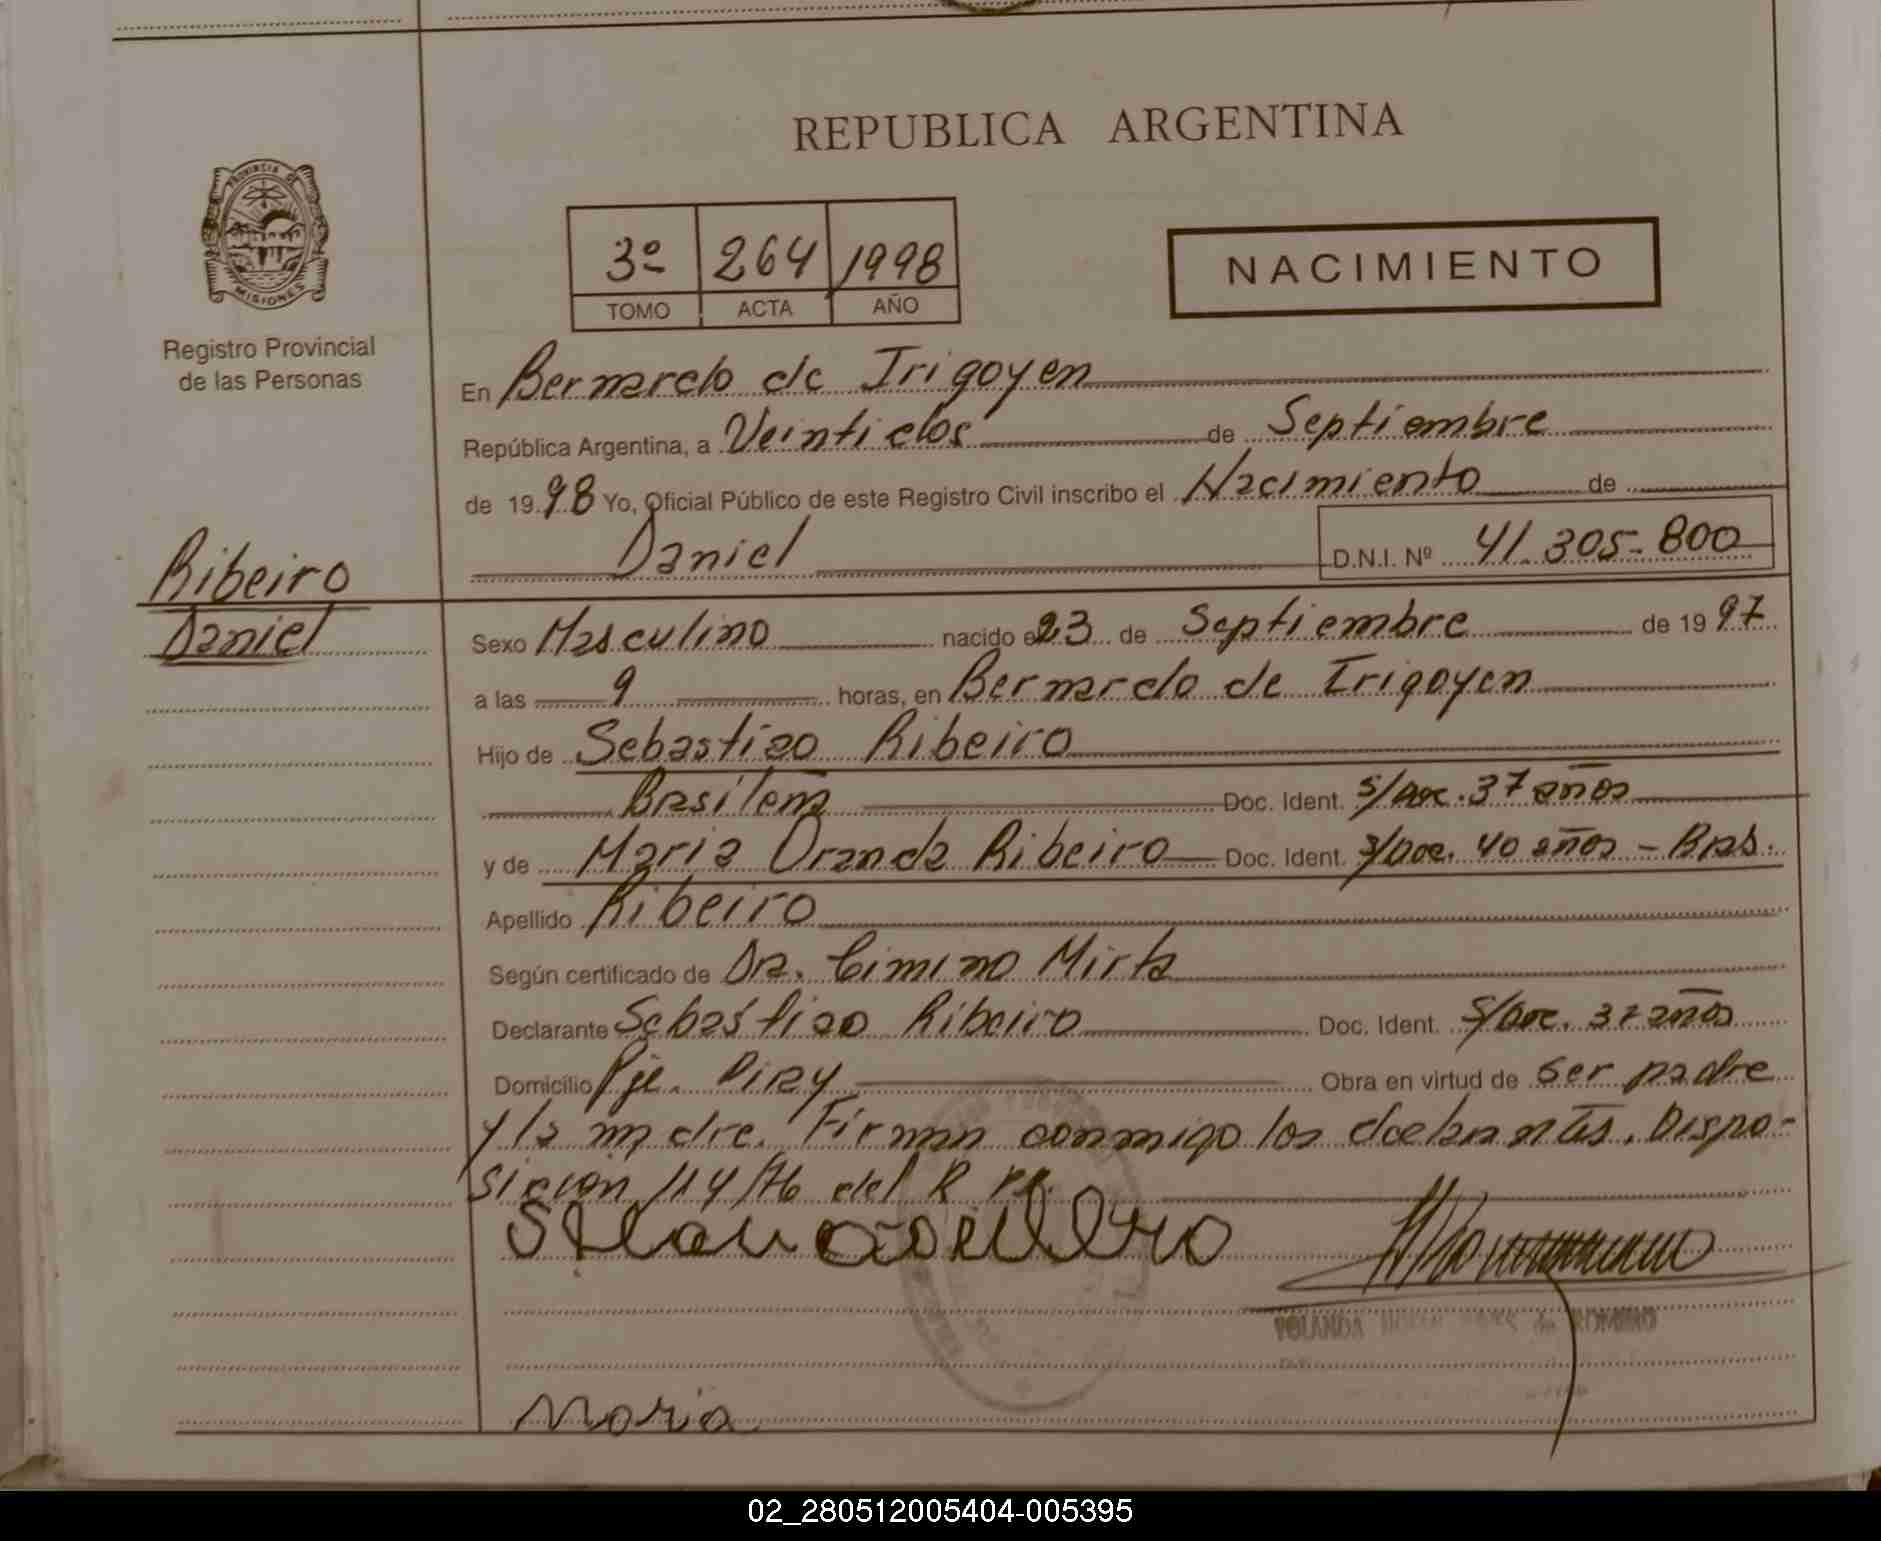 REPUBLICA ARGENTINA
PROVINCIA DE
MISIONES
Registro Provincial
de las Personas
3º 264 1998
TOMO ACTA AÑO
NACIMIENTO
En Bernardo de Irigoyen
República Argentina, a Veintidos de Septiembre
de 19 98 Yo, Oficial Público de este Registro Civil inscribo el Nacimiento de
Daniel D.N.I. Nº 41.305-800
Ribeiro
Daniel
Sexo Masculino nacido el 23 de Septiembre de 19 97
a las 9 horas, en Bernardo de Irigoyen
Hijo de Sebastiao Ribeiro
Brasileña Doc. Ident. s/Doc. 37 años
y de Maria Oranda Ribeiro Doc. Ident. s/Doc. 40 años - Bras.
Apellido Ribeiro
Según certificado de Dra. Cimino Mirta
Declarante Sebastiao Ribeiro Doc. Ident. S/Doc. 37 años
Domicilio Pje. Piray Obra en virtud de ser padre
y la madre. Firman conmigo los declarantes. Dispo-
sicion 114/76 del R.PP.
YOLANDA de ROMERO
Maria
02_280512005404-005395